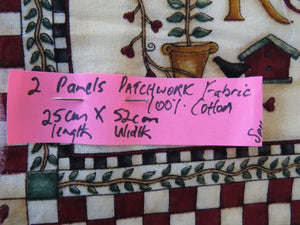 2 Panels PATCHWORK Fabric
100% Cotton
25cm X 52cm
length Width